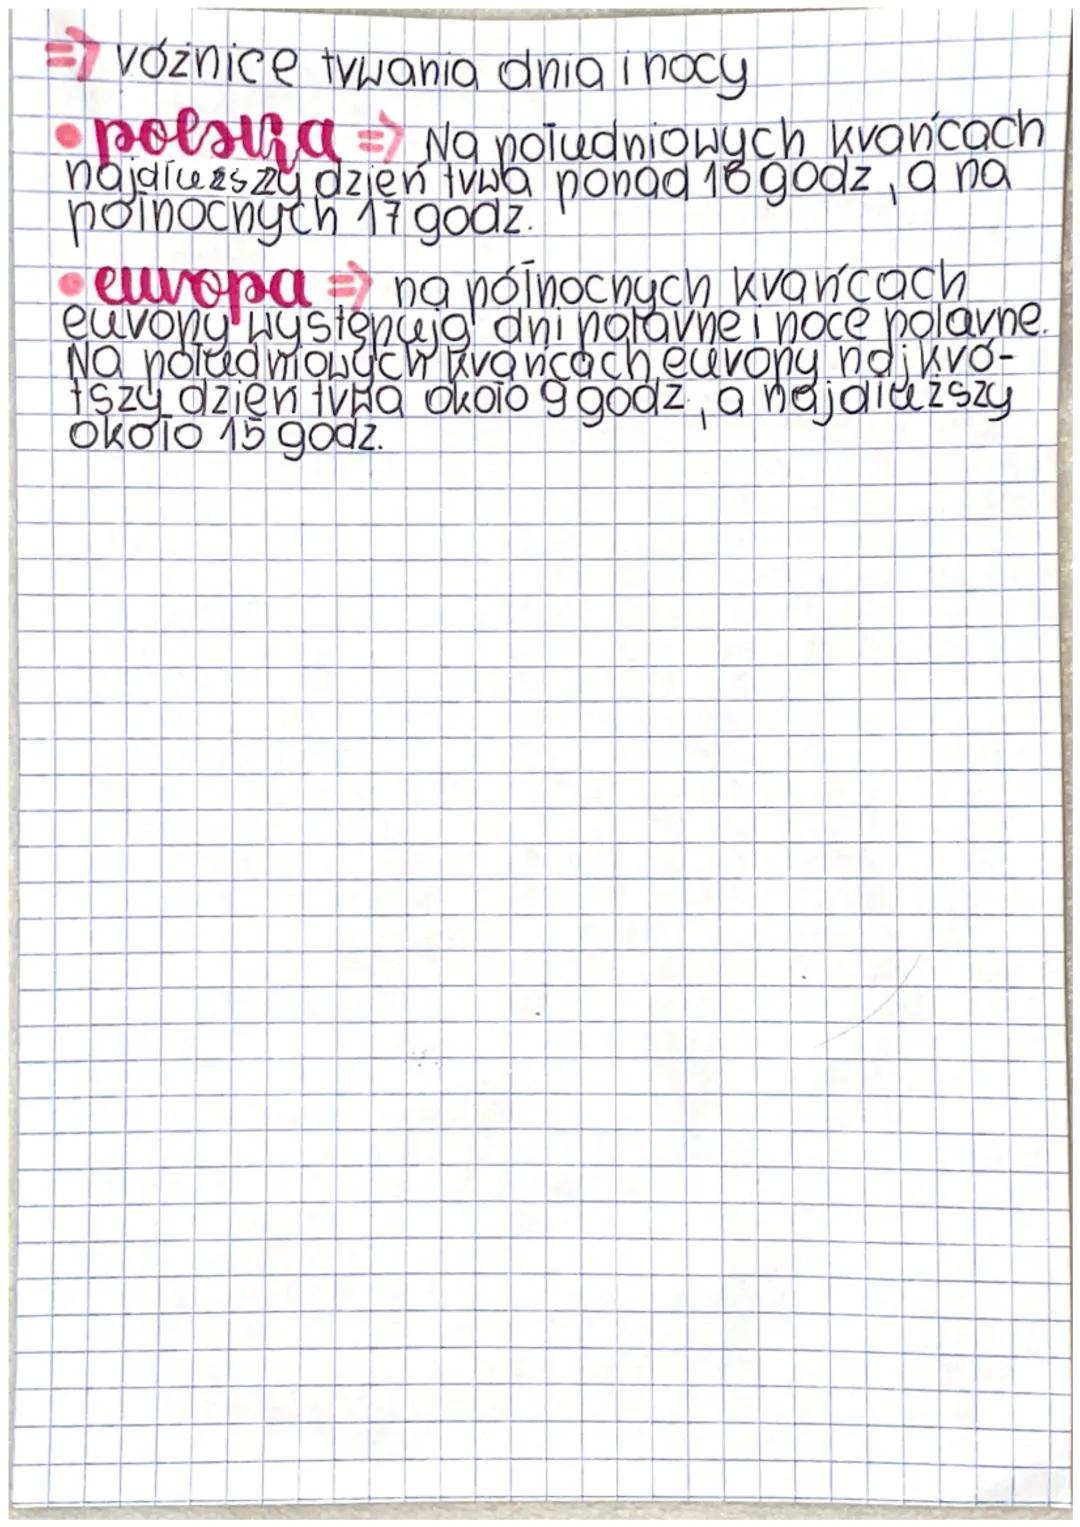 => różnice trwania dnia i nocy
• polska => Na południowych krańcach
najdłuższy dzień trwa ponad 16 godz, a na
północnych 17 godz.
• europa => na północnych krańcach
europy występują dni polarne i noce polarne.
Na południowych krańcach europy najkró-
tszy dzień trwa około 9 godz, a najdłuższy
około 15 godz.